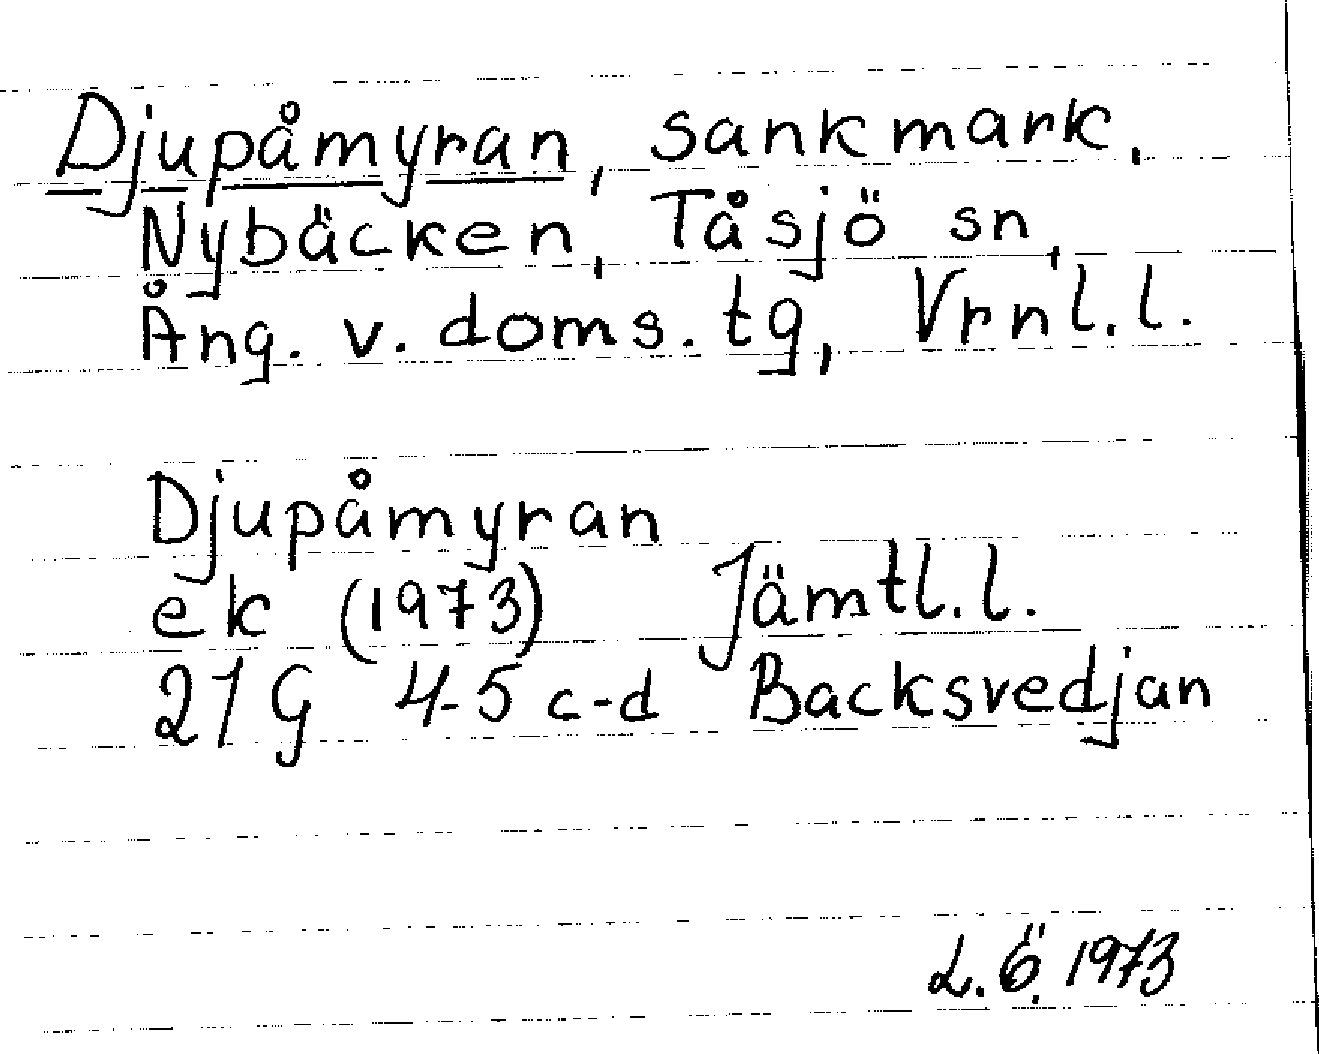 Djupåmyran, sankmark.
Nybäcken, Tåsjö sn,
Ång. v. doms. tg, Vrnl.l.
Djupåmyran
ek (1973) Jämtl.l.
21G 4-5 c-d Backsvedjan
L.Ö. 1973